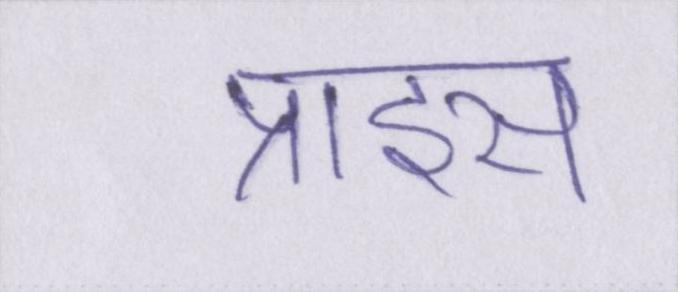 प्राइस